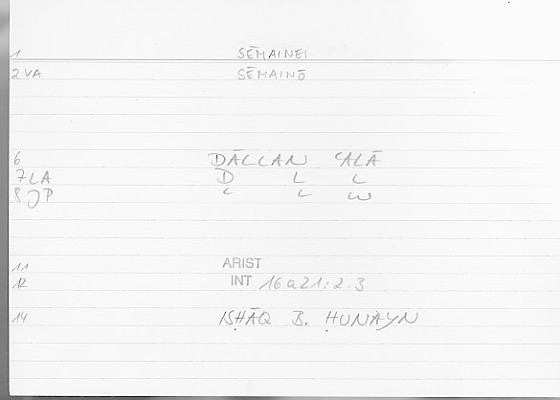 1 SĒMAINEI
2 VA SĒMAINŌ
6 DĀLLAN ʿALĀ
7 LA D L L
8 JP ʿ L W
11 ARIST
12 INT 16a21:2.3
14 ISḤĀQ B. ḤUNAYN